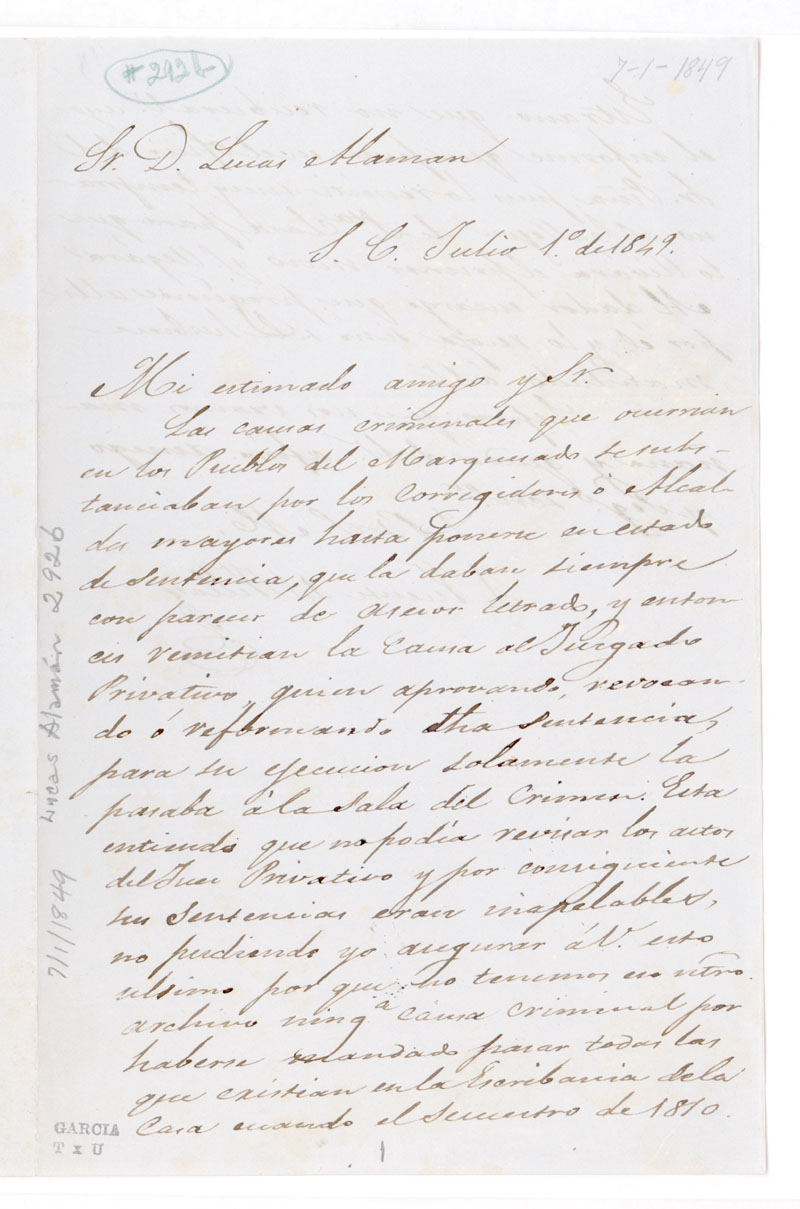 #2926
7-1-1849
Sr. D. Lucas Alaman
S. C. Julio 1.º de 1849.
Mi estimado amigo y Sr.
Las causas criminales que ocurrian
en los Pueblos del Marquesado se subs-
tanciaban por los Corregidores ó Alcal-
des mayores hasta ponerse en estado
de Sentencia, que la daban siempre
con parecer de asesor letrado, y enton-
ces remitian la Causa al Juzgado
Privativo, quien aprovando, revocan-
do ó reformando dha Sentencia,
para su ejecucion solamente la
pasaba á la Sala del Crimen. Esta
entiendo que no podia revisar los autos
del Juez Privativo y por consiguiente
sus Sentencias eran inapelables,
no pudiendo yo asegurar á V. esto
ultimo por que no tenemos en ntro.
archivo ning.a Causa Criminal por
haberse mandado pasar todas las
que existian en la Escribania de la
Casa cuando el Secuestro de 1810.
7/1/1849 Lucas Alamán 2926
GARCIA
T x U
1